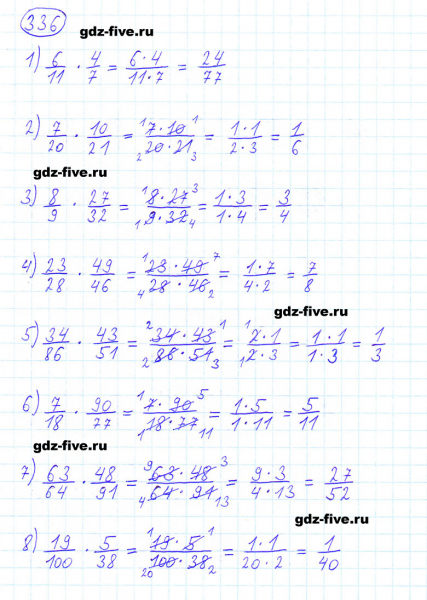 336 gdz-five.ru
1) 6/11 · 4/7 = 6·4/11·7 = 24/77
2) 7/20 · 10/21 = 1 7·10 1/2 20·21 3 = 1·1/2·3 = 1/6
gdz-five.ru
3) 8/9 · 27/32 = 1 8·27 3/1 9·32 4 = 1·3/1·4 = 3/4
4) 23/28 · 49/46 = 1 23·49 7/4 28·46 2 = 1·7/4·2 = 7/8
gdz-five.ru
5) 34/86 · 43/51 = 2 34·43 1/2 86·51 3 = 1 2·1/1 2·3 = 1·1/1·3 = 1/3
6) 7/18 · 90/77 = 1 7·90 5/1 18·77 11 = 1·5/1·11 = 5/11
gdz-five.ru
7) 63/64 · 48/91 = 9 63·48 3/4 64·91 13 = 9·3/4·13 = 27/52
gdz-five.ru
8) 19/100 · 5/38 = 1 19·5 1/20 100·38 2 = 1·1/20·2 = 1/40